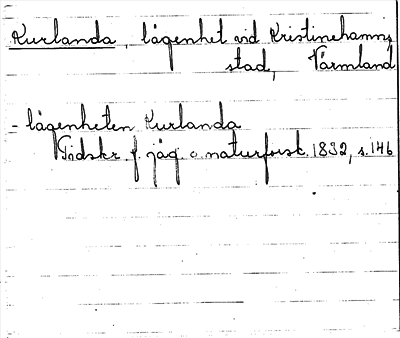 Kurlanda, lägenhet vid Kristinehamns
stad, Värmland
- lägenheten Kurlanda
Tidskr. f. jäg. o. naturforsk. 1832, s. 146